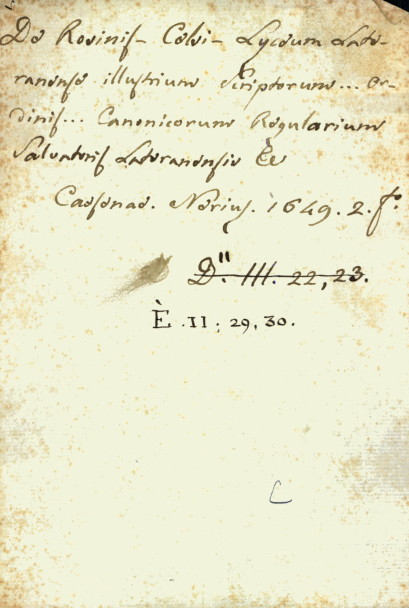 De Rosinis - Celsi - Lyceum Late-
ranense illustrium Scriptorum... or-
dinis... Canonicorum Regularium
Salvatoris Lateranensis &c
Caesenae. Nerius. 1649. 2. f.º
D." III. 22, 23.
È. II; 29, 30.
C